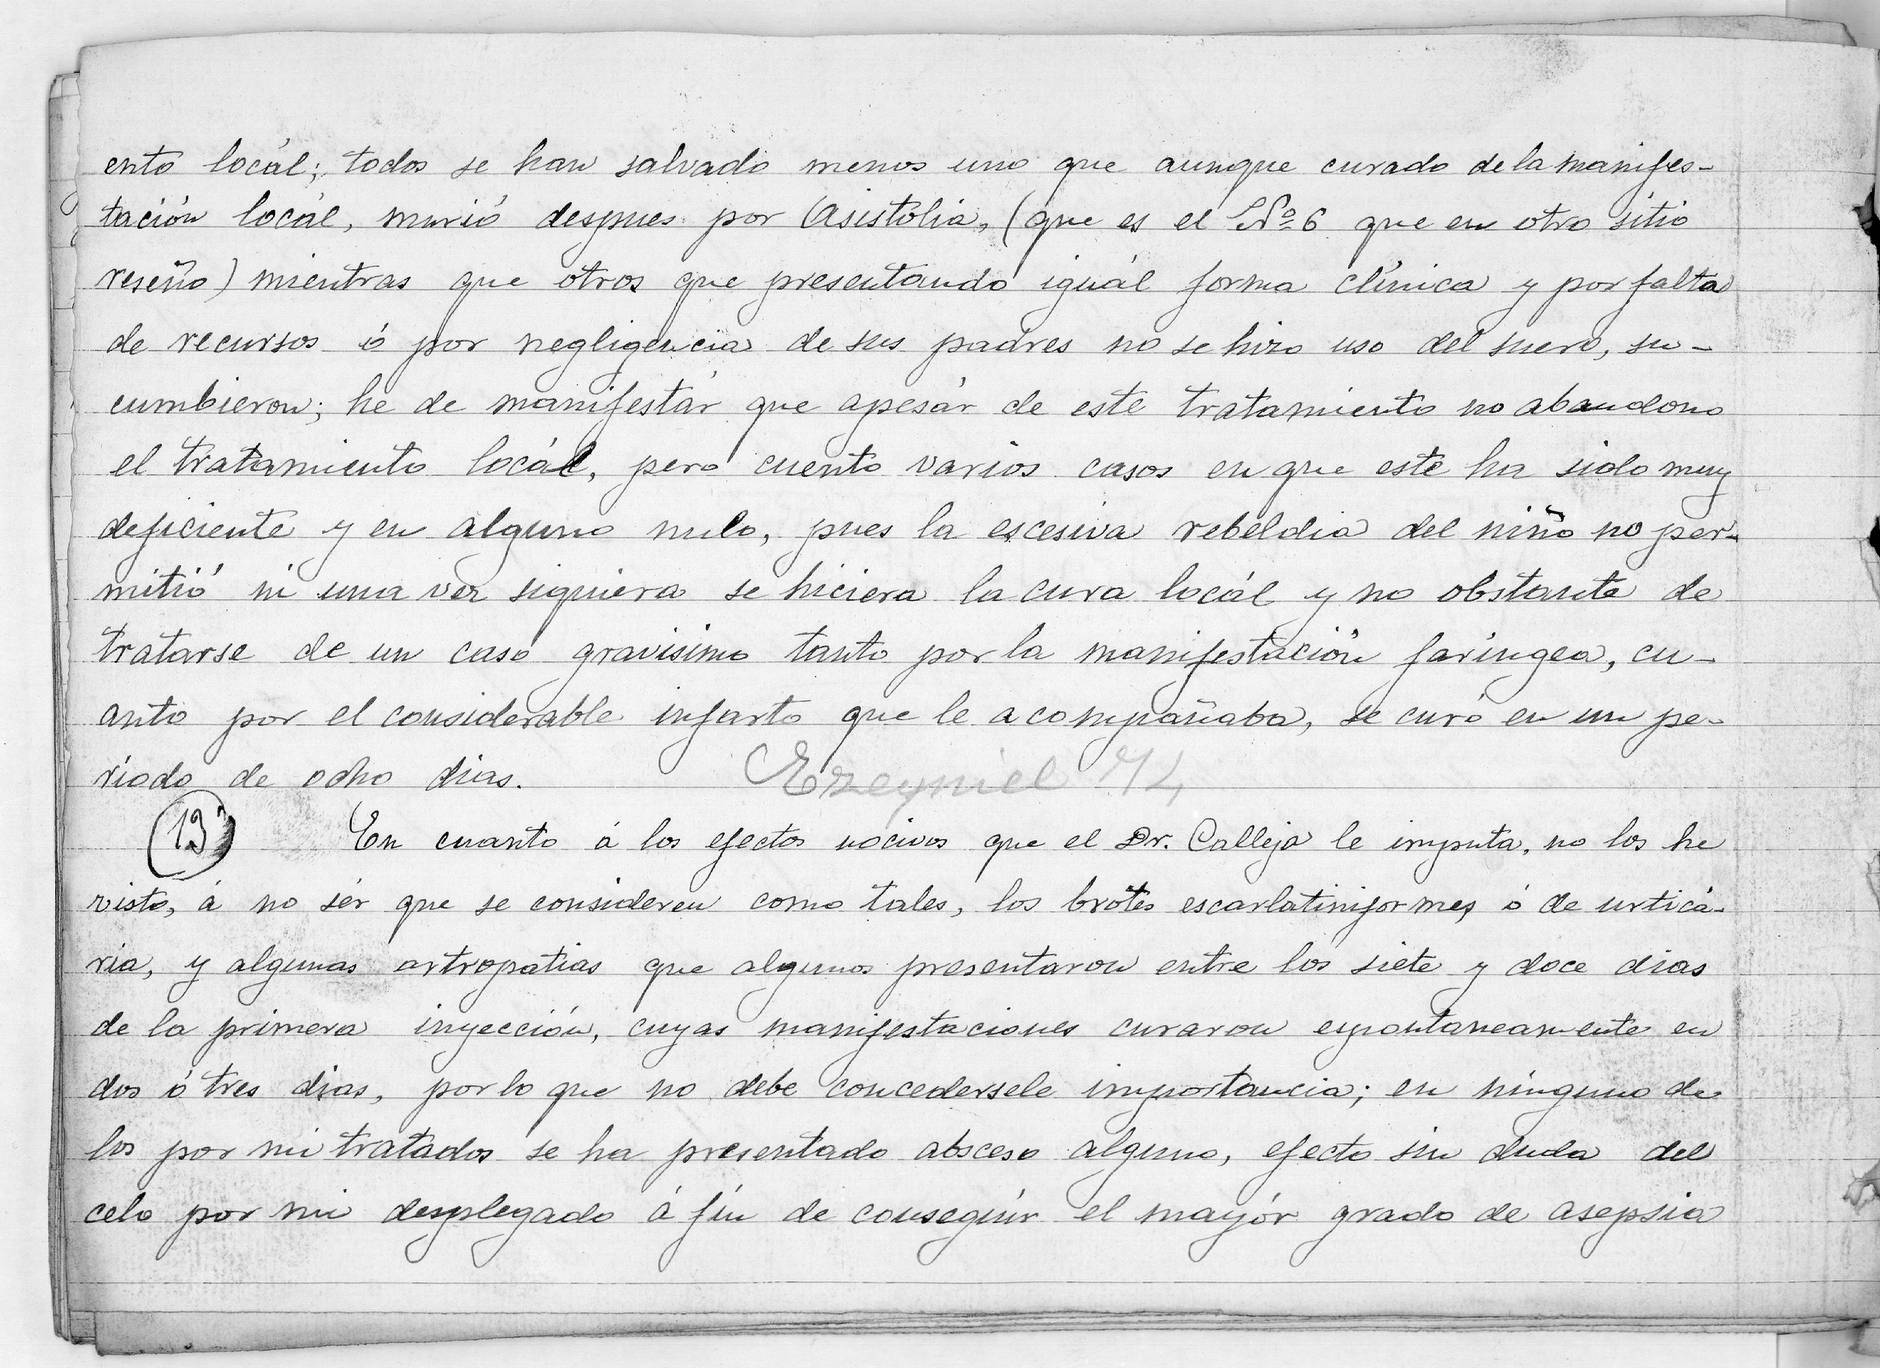 ento locál; todos se han salvado menos uno que aunque curado de la manifes-
tación locál, murió despues por Asistolia, (que es el Nº 6 que en otro sitio
reseño) mientras que otros que presentando iguál forma clínica y por falta
de recursos ó por negligencia de sus padres no se hizo uso del suero, su-
cumbieron; he de manifestár que apesár de este tratamiento no abandono
el tratamiento locál, pero cuento varios casos en que este ha sido muy
deficiente y en alguno nulo, pues la escesiva rebeldia del niño no per-
mitió ni una vez siquiera se hiciera la cura locál y no obstante de
tratarse de un caso gravisimo tanto por la manifestación faríngea, cu-
anto por el considerable infarto que le acompañaba, se curó en un pe-
riodo de ocho dias. Ezequiel
13 En cuanto á los efectos nocivos que el Dr. Calleja le imputa, no los he
visto, á no sér que se consideren como tales, los brotes escarlatiniformes ó de urticá-
ria, y algunas artropatias que algunos presentaron entre los siete y doce dias
de la primera inyección, cuyas manifestaciones curaron espontaneamente en
dos ó tres dias, por lo que no debe concedersele importancia; en ninguno de
los por mi tratados se ha presentado absceso alguno, efecto sin duda del
celo por mi desplegado á fín de conseguír el mayór grado de asepsia